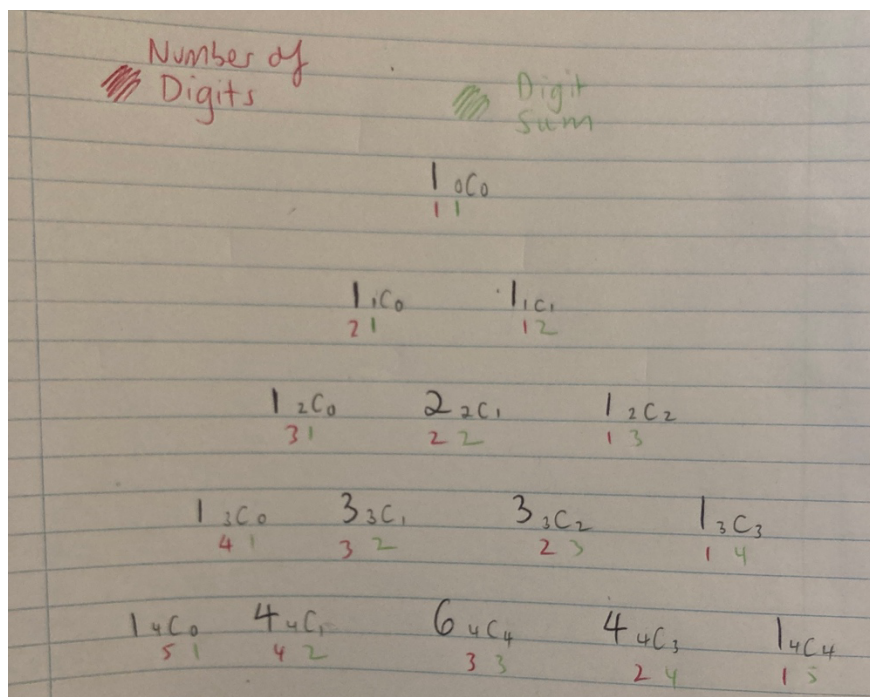 Number of
Digits
Digit
Sum
1 0C0
1 1
1 1C0 1 1C1
2 1 1 2
1 2C0 2 2C1 1 2C2
3 1 2 2 1 3
1 3C0 3 3C1 3 3C2 1 3C3
4 1 3 2 2 3 1 4
1 4C0 4 4C1 6 4C4 4 4C3 1 4C4
5 1 4 2 3 3 2 4 1 5